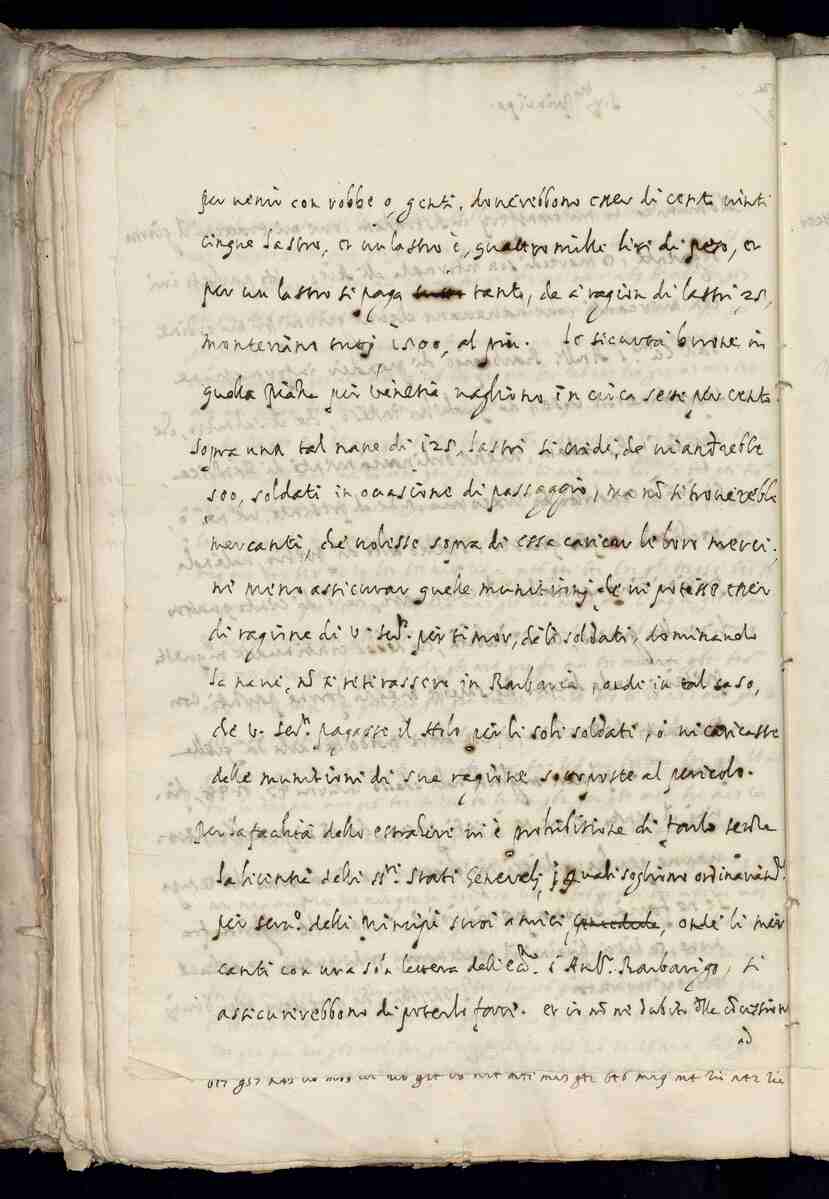 per venir con robbe o, genti, doverebbono esser di cento vinti
cinque lastro, et un lastro è, quattro mille lire di peso, et
per un lastro si paga tanto, che a ragion di lastri 125,
monteriano tutti 1500, al più. Le sicurtà buone in
quella piazza per Venetia vagliono in circa sette per cento.
Sopra una tal nave di 125, lastri si crede, che vi andrebbe
500, soldati in occasione di passaggio, ma nõ si troverebbe
mercanti, che volesse sopra di essa caricar le loro merci,
ne meno assicurar quelle munitioni, che vi potesse esser
di ragione di V. Serᵗᵃ. per timor, che li soldati, dominando
la nave, nõ si ritirassero in Barbaria, onde in tal caso,
che V. Serᵗᵃ. pagasse il nolo per li soli soldati, o vi caricasse
delle munitioni di sua ragione sottoposte al pericolo.
per la facoltà dello estrahere vi è prohibitione di farlo senza
la licentia delli SSʳⁱ. Stati Generali, i quali sogliono ordinariamᵗᵉ.
per servº. delli Principi suoi amici, concederla, onde li mer
canti con una sol lettera dell'Ecᵐᵒ. s. Ambʳ. Barbarigo, si
assicurerebbono di poterlo fare. et io nõ ne dubito della
ad